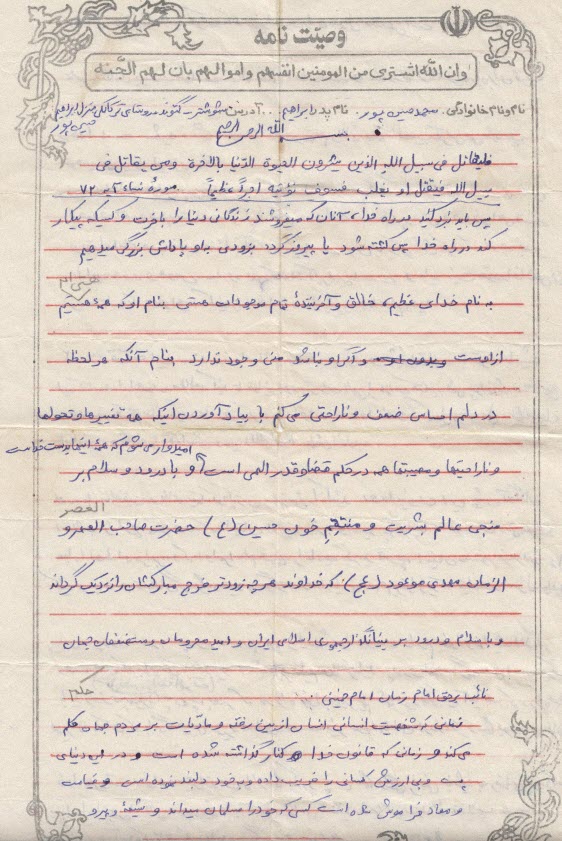 وصیّت نامه
وان الله اشتری من المومنین انفسهم واموالهم بان لهم الجَّنه
نام و نام خانوادگی: محمد حسین پور. نام پدر ابراهیم .. آدرس شوشتر گتوند روستای ترکالکی منزل ابراهیم
حسین پور
بسم الله الرحمن الرحیم
فلیقاتل فی سبیل الله الذین یشرون الحیوة الدنیا بالاخرة ومن یقاتل فی
سبیل الله فیقتل او یغلب فسوف نؤتیه اجراً عظیماً. سورهٔ نساء آیه ۷۲
پس باید نبرد کنند در راه خدا، آنان که میفروشند زندگانی دنیا را بآخرت و کسیکه پیکار
کند در راه خدا پس کشته شود یا پیروز گردد بزودی باو پاداش بزرگی میدهیم
به نام خدای عظیم، خالق و آفرینندهٔ تمام موجودات هستی بنام او که همه هستیم
از اوست و اگر او نباشد منی وجود ندارد بنام آنکه هر لحظه
در دلم احساس ضعف و ناراحتی می کنم با بیاد آوردن اینکه همه تغییرها و تحولها
امیدوار می شوم که همه اینها بدست خداست
و ناراحتیها و مصیبتها همه در حکم قضا و قدر الهی است و با درود و سلام بر
العصر
منجی عالم بشریت و منتقِمِ خون حسین (ع) حضرت صاحب العصر و
الزمان مهدی موعود (عج) که خداوند هر چه زودتر فرج مبارکشان را نزدیک گرداند
و با سلام و درود بر بنیانگذار جمهوری اسلامی ایران و امید محرومان و مستضعفان جهان
نائب برحق امام زمان امام خمینی.
حکم
زمانی که شخصیت انسانی انسان از بین رفته و مادّیات بر مردم جهان حکم
می کند و زمانی که قانون خدا کنار گذاشته شده است و در این دنیای
پست و بی ارزش کسانی را فریب داده و بخود دلبند نموده است و قیامت
و معاد فراموش شده است کسی که خود را مسلمان میداند و شیعهٔ و پیرو